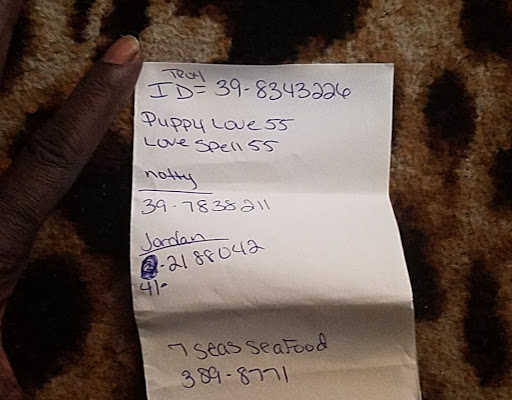 Troy
ID= 39-8343226
Puppy Love 55
Love Spell 55
natty
39-7838211
Jordan
-2188042
41-
7 Seas Seafood
389-8771